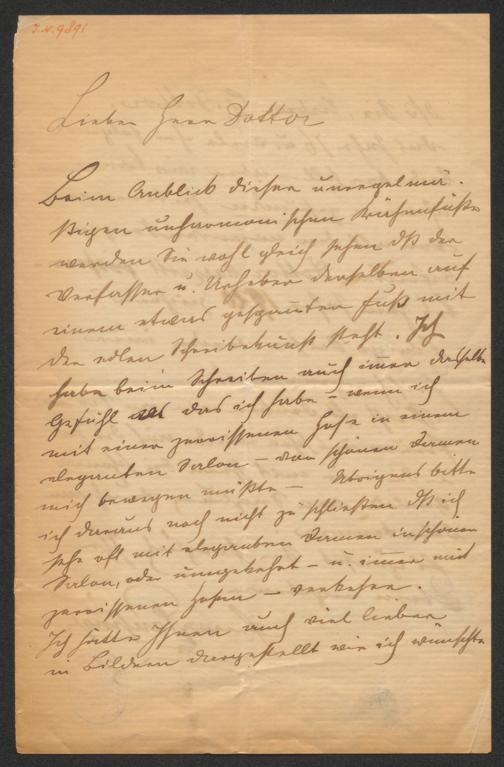 J.N. 9891
Lieber Herr Doktor
Beim Anblick dieser unregelmä-
ßigen unharmonischen Krähenfüße
werden Sie wohl gleich sehen dß der
Verfasser u. Urheber derselben auf
einem etwas gespannten Fuß mit
der edlen Schreibekunst steht. Ich
habe beim Schreiben auch immer dasselbe
Gefühl das ich habe – wenn ich
mit einer zerrissenen Hose in einem
eleganten Salon – vor schönen Damen
mich bewegen müßte – Übrigens bitte
ich daraus noch nicht zu schließen dß ich
sehr oft mit eleganten Damen in schönen
Salon, oder umgekehrt – u. immer mit
zerrissenen Hosen – verkehre.
Ich hätte Ihnen auch viel lieber
in Bildern dargestellt wie ich wünschte